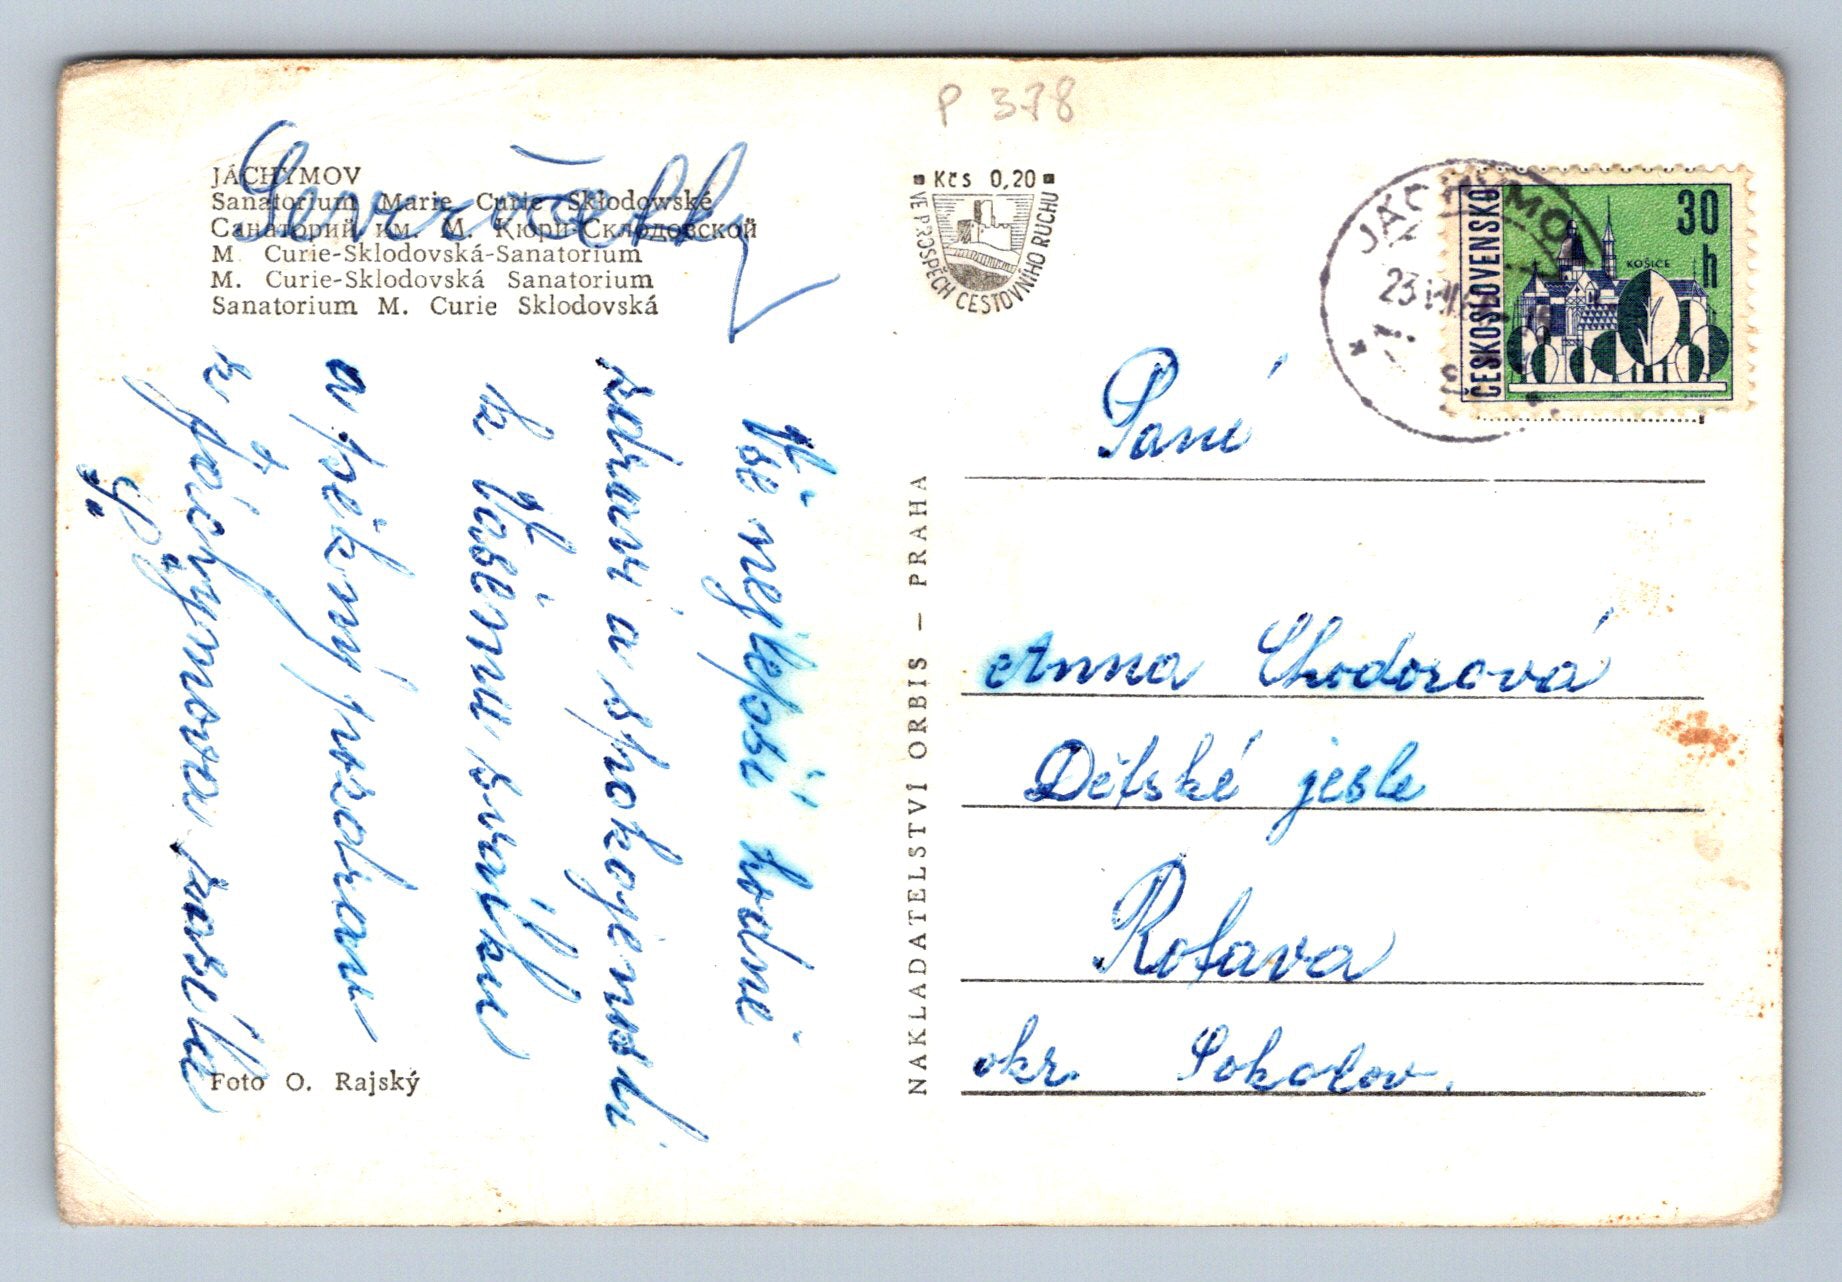 P 378
JÁCHYMOV
Sanatorium Marie Curie Skłodowské
Санаторий им. М. Кюри-Склодовской
M. Curie-Sklodovská-Sanatorium
M. Curie-Sklodovská Sanatorium
Sanatorium M. Curie Sklodovská
Vše nejlepší hodně
zdraví a spokojenosti
k Vašemu svátku
a pěkný pozdrav
z Jáchymova zasílá
Foto O. Rajský
NAKLADATELSTVÍ ORBIS — PRAHA
Kčs 0,20
VE PROSPĚCH CESTOVNÍHO RUCHU
JÁCHYMOV
23
ČESKOSLOVENSKO
30 h
KOŠICE
Paní
Anna Chodorová
Dětské jesle
Rotava
okr. Sokolov.